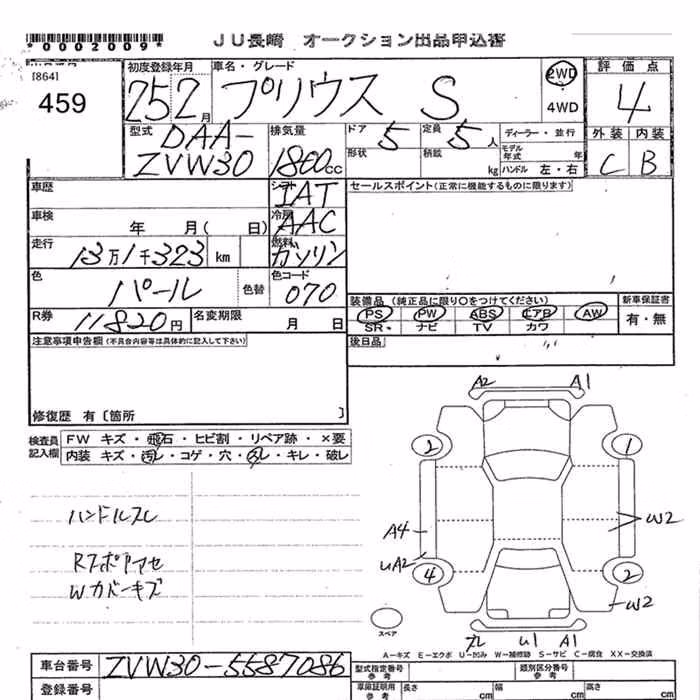 *0002009*
JU長崎 オークション出品申込書
[864]
459
初度登録年月
25 2月
車名・グレード
プリウス S
2WD
4WD
評価点
4
外装 内装
C B
型式
DAA-
ZVW30
排気量
1800cc
ドア 5
形状
定員 5人
積載 kg
ディーラー・並行
モデル年式 年
ハンドル 左・右
車歴
シフト
IAT
セールスポイント(正常に機能するものに限ります)
車検 年 月( 日)
冷房
AAC
走行
13万1千323 km
燃料
ガソリン
色
パール
色替
色コード
070
R券
11820円
名変期限 月 日
装備品 (純正品に限り○をつけてください)
PS PW ABS エアB AW
SR ナビ TV カワ
新車保証書
有・無
注意事項申告欄(不具合内容等は具体的に記入して下さい)
後日品
修復歴 有 [箇所 ]
検査員記入欄
FW キズ・飛石・ヒビ割・リペア跡・×要
内装 キズ・汚レ・コゲ・穴・スレ・キレ・破レ
ハンドルスレ
Rスポイアセ
Wカバーキズ
A2 A1
2 1
A4 W2
UA2
4 2
W2
スペア
スレ U1 A1
A−キズ E−エクボ U−凹み W−補修跡 S−サビ C−腐食 XX−交換済
車台番号
ZVW30-5587086
登録番号
型式指定番号
参考
類別区分番号
参考
車庫証明用
参考
長さ cm
幅 cm
高さ cm